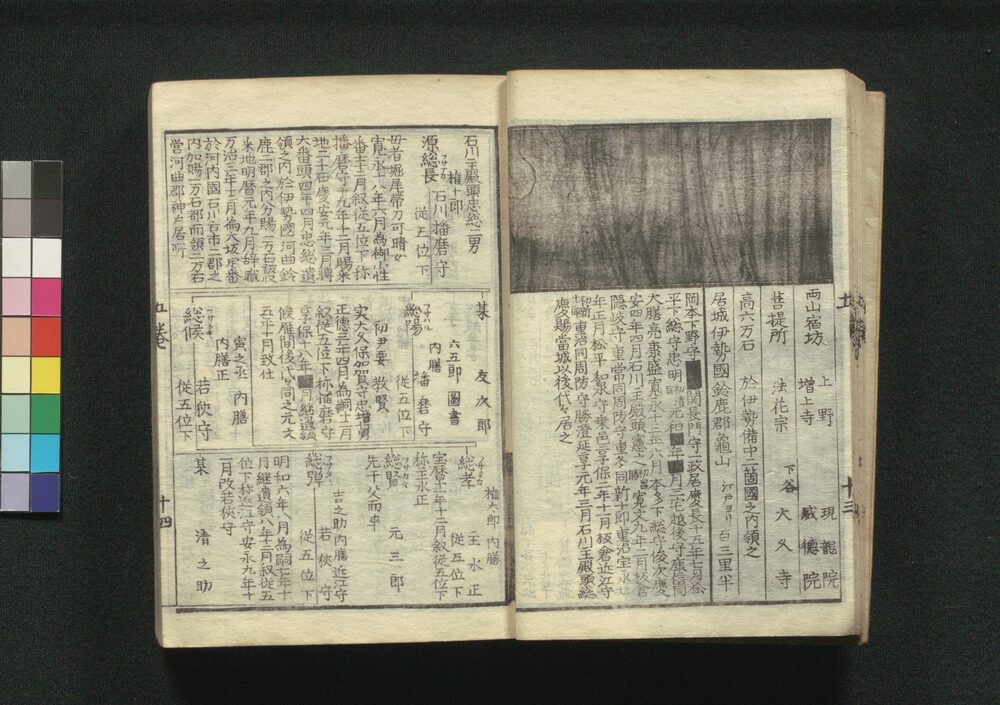 両山宿坊 上野 現龍院
増上寺 威徳院
菩提所 法花宗 下谷 大久寺
高六万石 於伊勢備中二箇國之内領之
居城伊勢國鈴鹿郡龜山 江戸ヨリ 百三里半
岡本下野守 関長門守一政居慶長十五年七月松
平下総守忠明 元和 年 月三宅越後守康信同
大膳亮康盛寛永十三年六月本多下総守俊次慶
安四年四月石川主殿頭憲之 寛文九年二月板倉
隠岐守重常同周防守重冬同新十郎重治宝永七
年正月松平和泉守乗邑享保二年十一月板倉近江守
重治同周防守勝澄延享元年三月石川主殿頭総
慶賜當城以後代々居之
十三
石川主殿頭忠総二男
権十郎
源総長 石川播磨守
従五位下
母者堀尾帯刀可晴女
寛永十八年六月為御小性
番士十二月叙従五位下称
播磨守十九年十二月賜采
地二千石慶安元年三月轉
大番頭四年四月忠総遺
領之内於伊勢國河曲鈴
鹿二郡之内分賜一万石收
采地明暦元年九月辞職
万治三年十一月為大坂定番
於河内國石川古市二郡之
内加賜一万石都而領二万石
営河曲郡神戸居所
某 友次郎
六五郎 圖書
内膳
総陽 播磨守
フサハル 従五位下
初尹要 教賢
実大久保加賀守忠増男
正徳三年四月為嗣十二月
叙従五位下称播磨守
享保十八年 月継遺領
候雁間後代々同之元文
五年十月致仕
寅之丞 内膳
内膳正
総候 若狭守
従五位下
権太郎 内膳
総孝 主水正
フサタカ 従五位下
宝暦十年十二月叙従五位下
称主水正
総賢 元三郎
先于父而卒
吉之助 内膳 近江守
総弾 若狭守
従五位下
明和六年八月為嗣七年十
月継遺領八年十二月叙従五
位下称近江守安永九年十
一月改若狭守
某 清之助
五巻
十四